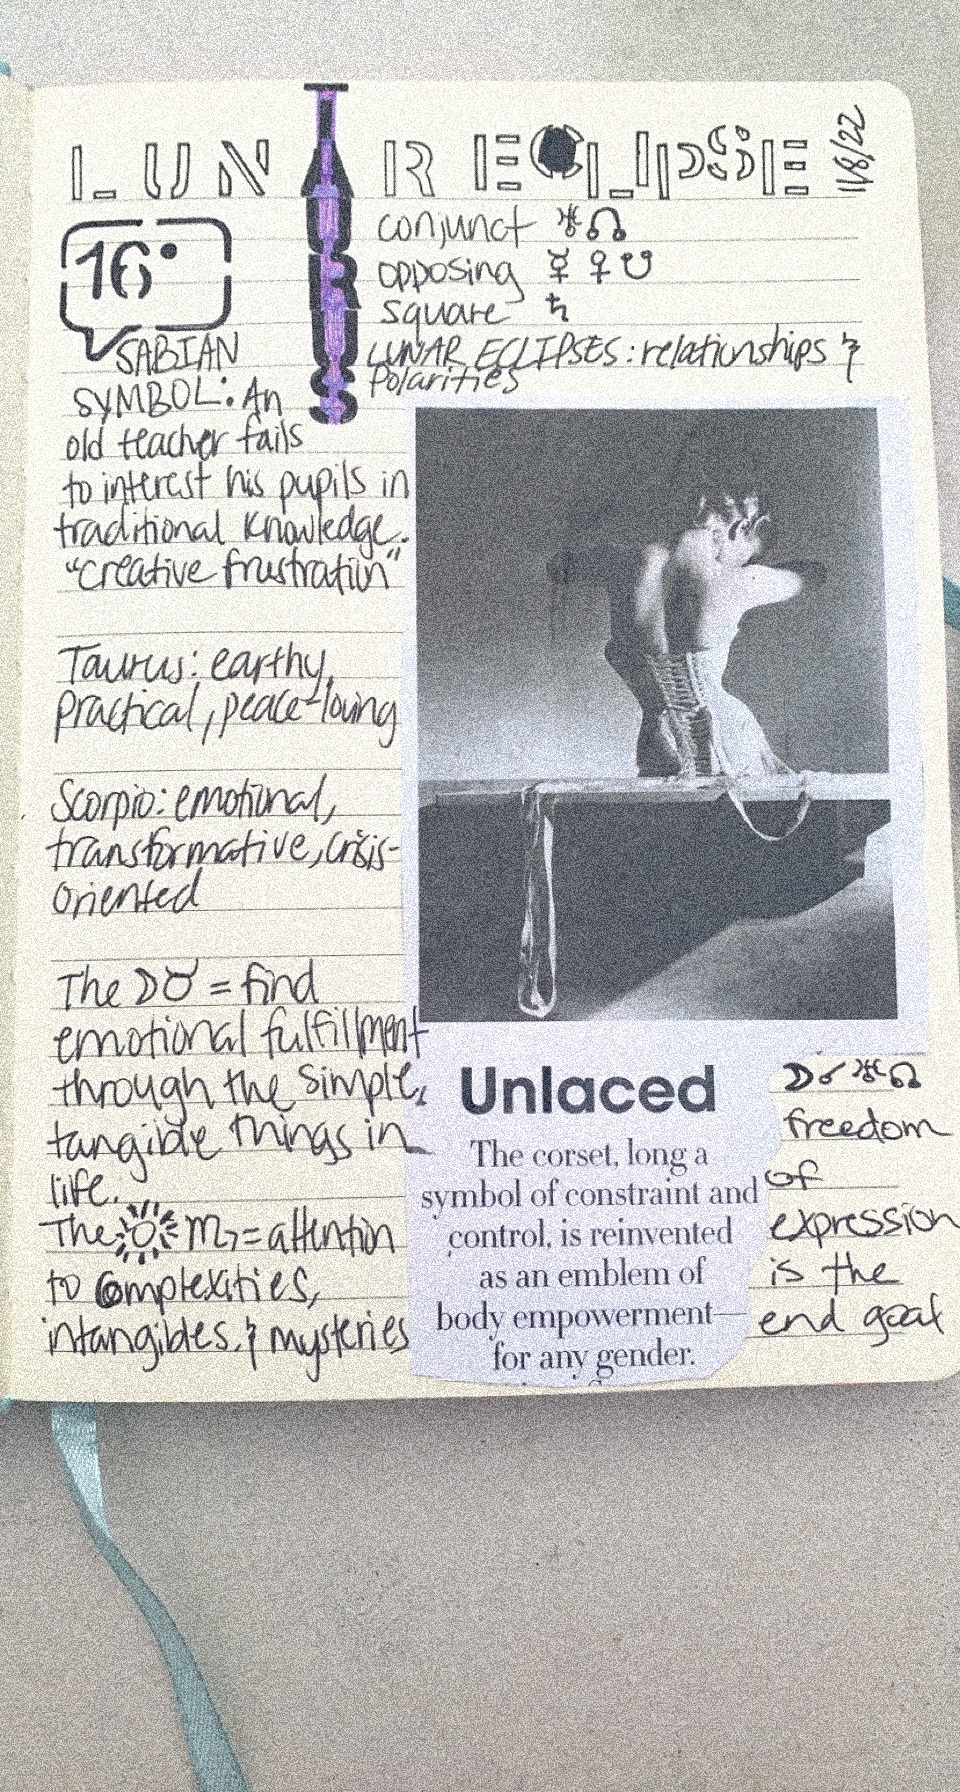 LUNAR ECLIPSE 11/8/22
TAURUS
16°
conjunct ♅☊
opposing ☿ ♀ ☋
square ♄
LUNAR ECLIPSES: relationships &
Polarities
SABIAN
SYMBOL: An
old teacher fails
to interest his pupils in
traditional knowledge.
"creative frustration"
Taurus: earthy,
practical, peace-loving
Scorpio: emotional,
transformative, crisis-
oriented
The ☽♉ = find
emotional fulfillment
through the simple,
tangible things in
life.
The ☀ ♏ = attention
to complexities,
intangibles, & mysteries
Unlaced
The corset, long a
symbol of constraint and
control, is reinvented
as an emblem of
body empowerment—
for any gender.
☽☌♅☊
freedom
of
expression
is the
end goal